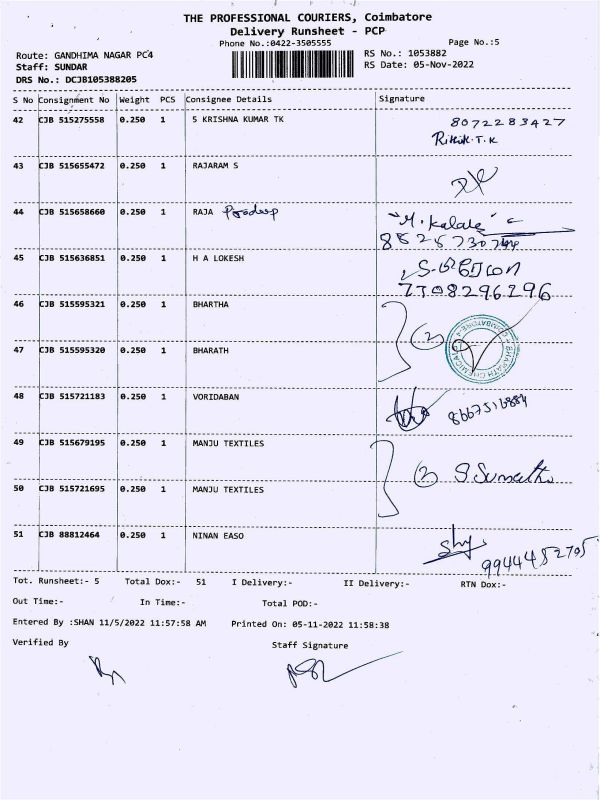 THE PROFESSIONAL COURIERS, Coimbatore
Delivery Runsheet - PCP
Phone No.:0422-3505555 Page No.:5
Route: GANDHIMA NAGAR PC4 RS No.: 1053882
Staff: SUNDAR RS Date: 05-Nov-2022
DRS No.: DCJB105388205
S No Consignment No Weight PCS Consignee Details Signature
42 CJB 515275558 0.250 1 S KRISHNA KUMAR TK 8072283427
Rithik.T.K
43 CJB 515655472 0.250 1 RAJARAM S
44 CJB 515658660 0.250 1 RAJA Pradeep "M. Kalak"
45 CJB 515636851 0.250 1 H A LOKESH
7708296296
46 CJB 515595321 0.250 1 BHARTHA (2) BHARATH CHEMICAL COIMBATORE
47 CJB 515595320 0.250 1 BHARATH
48 CJB 515721183 0.250 1 VORIDABAN 8667516884
49 CJB 515679195 0.250 1 MANJU TEXTILES (2) S. Sumathi
50 CJB 515721695 0.250 1 MANJU TEXTILES
51 CJB 88812464 0.250 1 NINAN EASO 9944452705
Tot. Runsheet:- 5 Total Dox:- 51 I Delivery:- II Delivery:- RTN Dox:-
Out Time:- In Time:- Total POD:-
Entered By :SHAN 11/5/2022 11:57:58 AM Printed On: 05-11-2022 11:58:38
Verified By Staff Signature